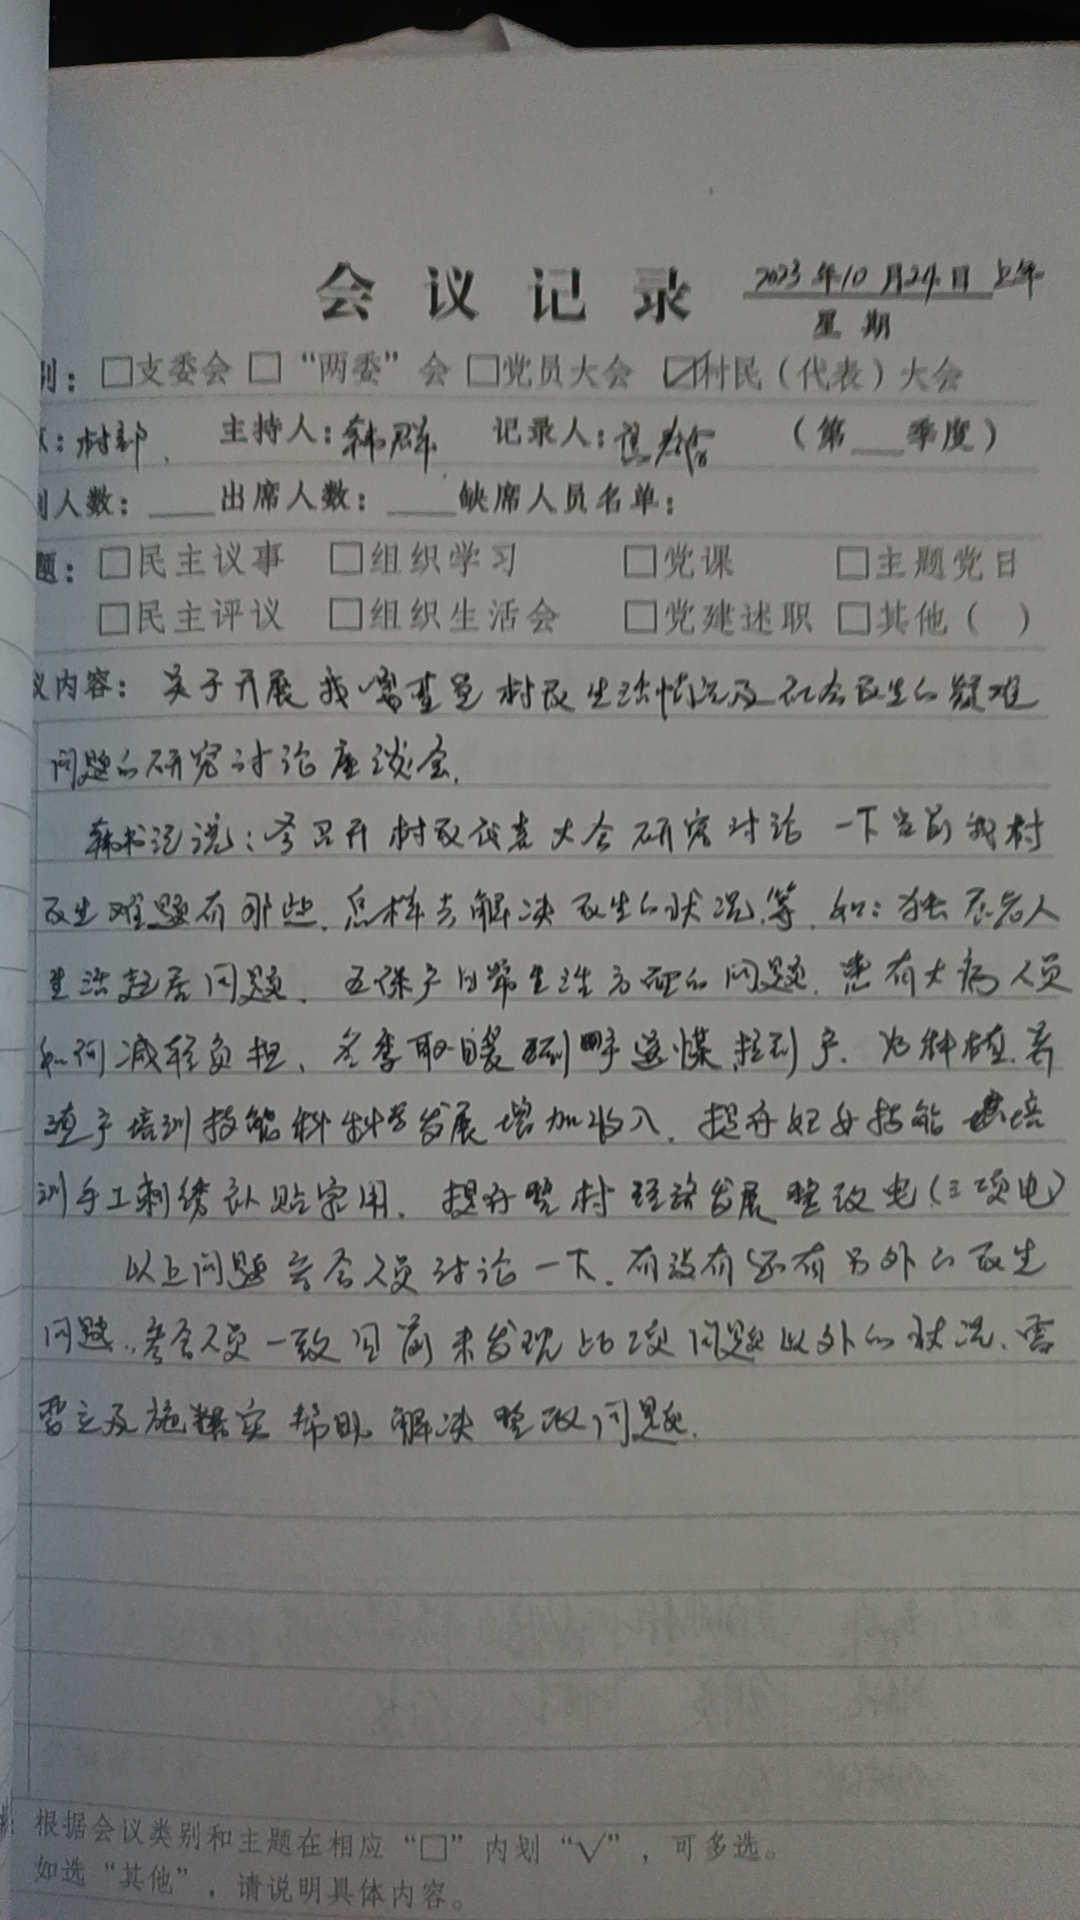 会议记录 2023年10月24日 上午
星期
别：□支委会 □“两委”会 □党员大会 ☑村民（代表）大会
村部 主持人：韩群 记录人： （第 季度）
人数： 出席人数： 缺席人员名单：
题：□民主议事 □组织学习 □党课 □主题党日
□民主评议 □组织生活会 □党建述职 □其他（ ）
议内容：关于开展我嘎查 村民生活情况及社会民生的疑难
问题的研究讨论座谈会.
韩书记说：今召开村民代表大会研究讨论一下当前我村
民生难题有那些.怎样去解决民生的状况等.如：独居老人
生活起居问题、五保户日常生活方面的问题.患有大病人员
如何减轻负担、冬季取暖 送煤拉到户.为种植.养
殖户培训技能科学发展增加收入.提升妇女技能培
训手工刺绣补贴家用.提升 村经济发展整改电（三项电）
以上问题 参会人员讨论一下.有没有还有另外的民生
问题.参会人员一致目前未发现上6项问题以外的状况.需
要立及施 实帮助解决整改问题.
根据会议类别和主题在相应“□”内划“√”，可多选。
如选“其他”，请说明具体内容。